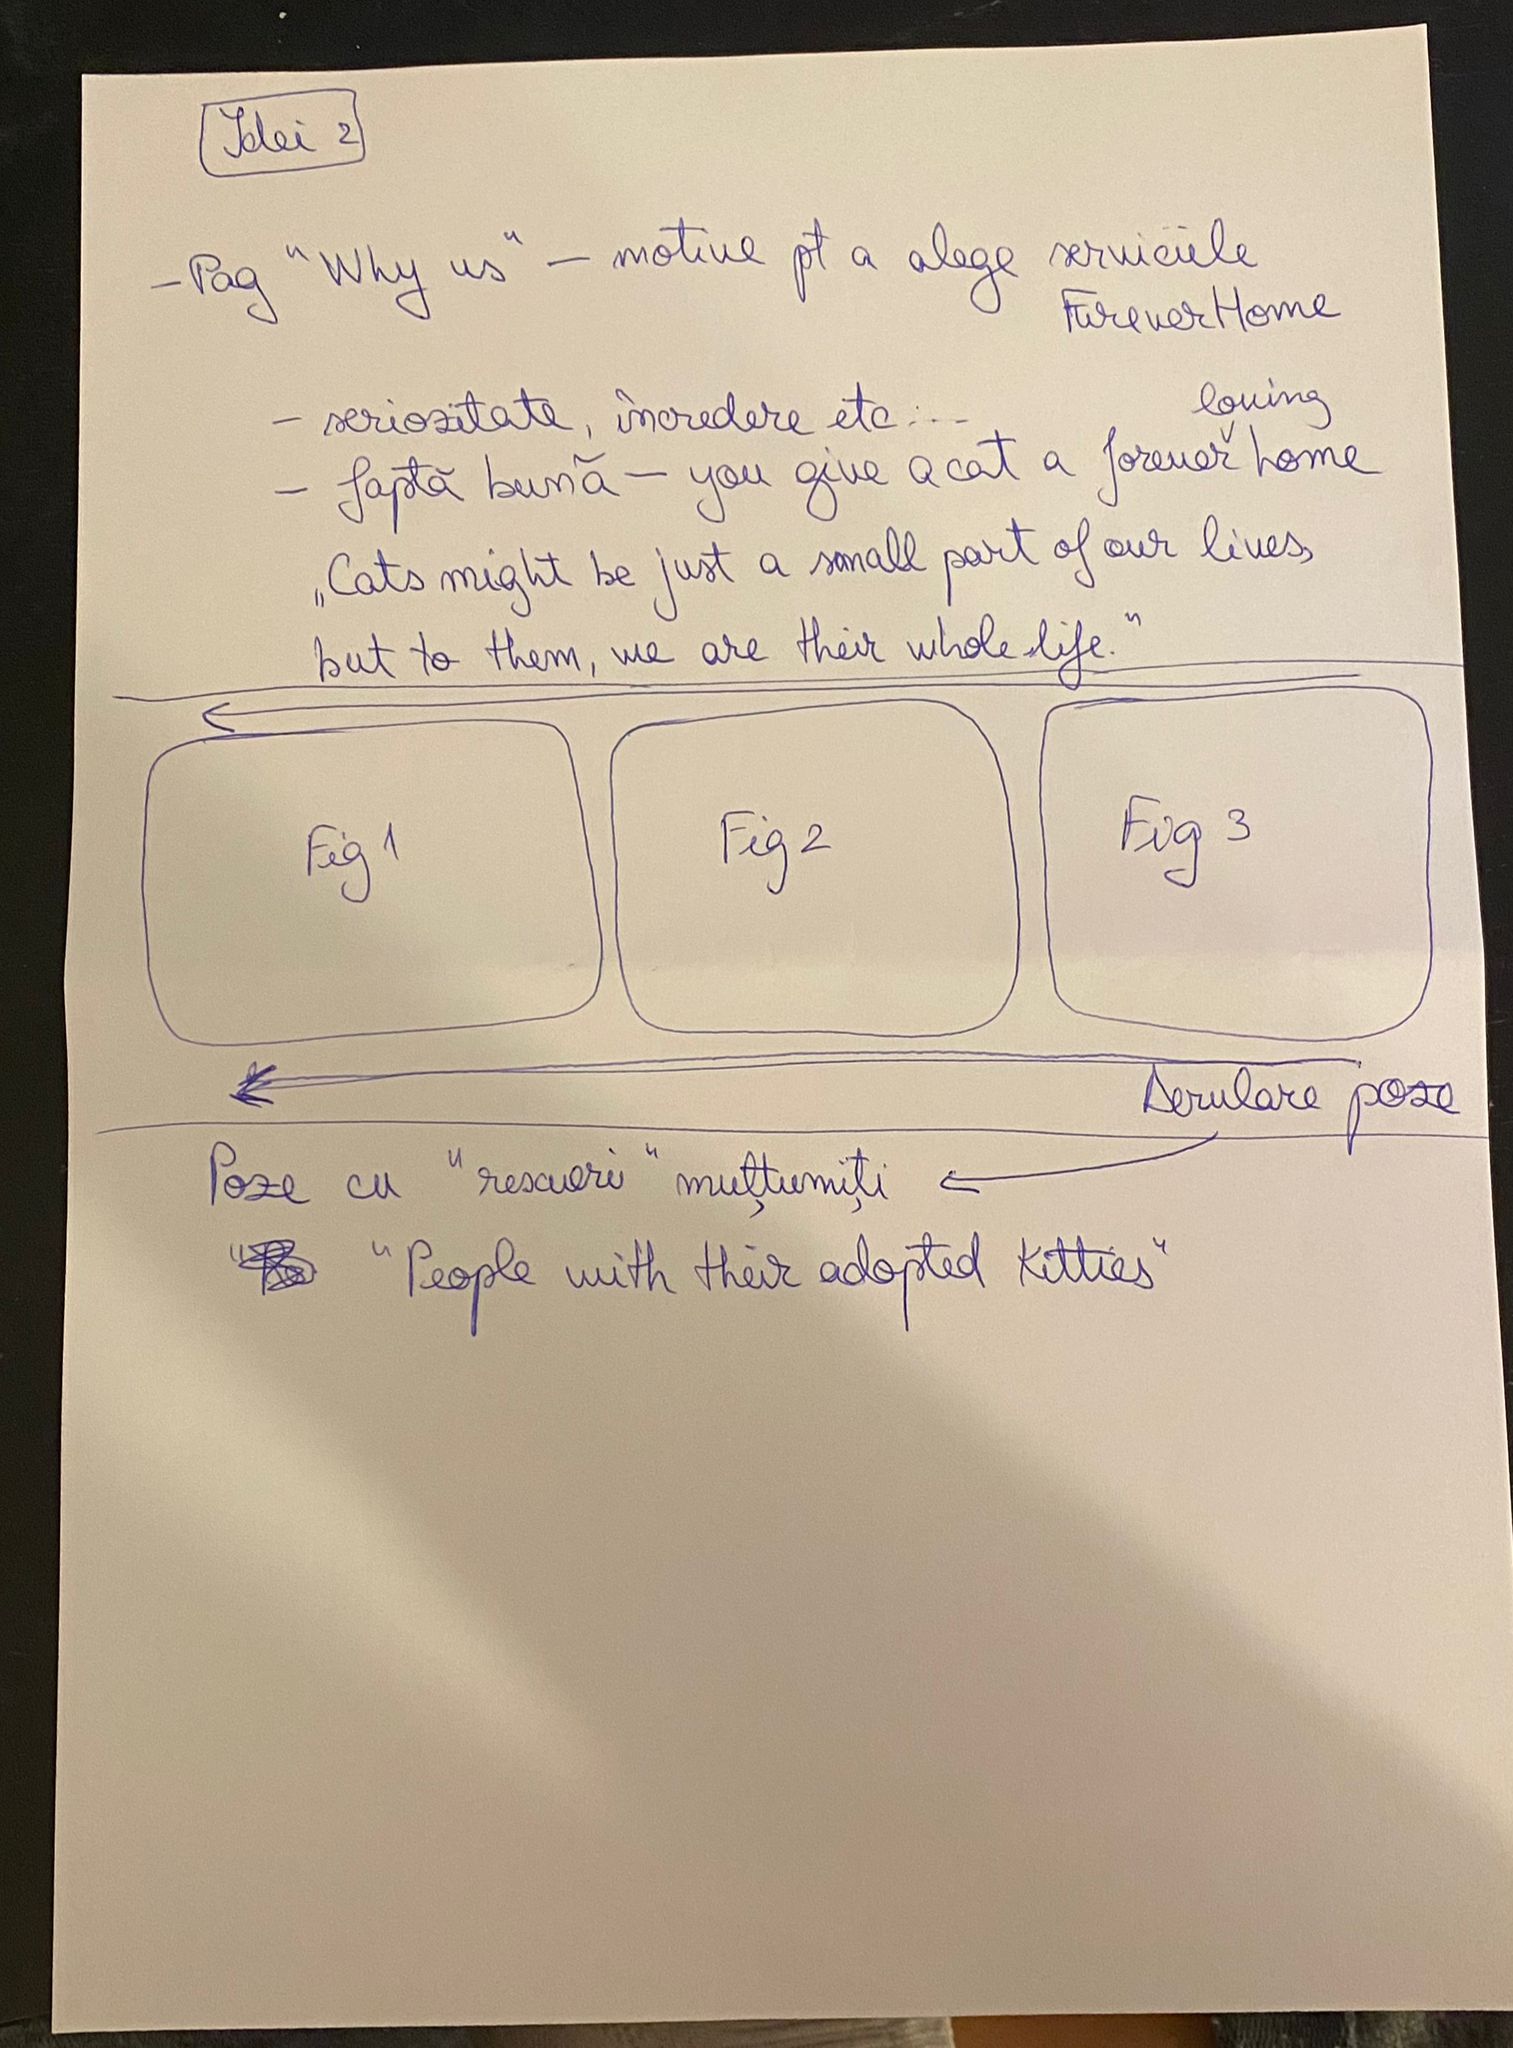 Idei 2
- Pag "Why us" - motive pt a alege serviciile
FureverHome
- seriozitate, încredere etc...
loving
- faptă bună - you give a cat a forever home
„Cats might be just a small part of our lives,
but to them, we are their whole life."
Fig 1 Fig 2 Fig 3
Derulare poze
Poze cu "rescueri" mulțumiți
"People with their adopted Kitties"